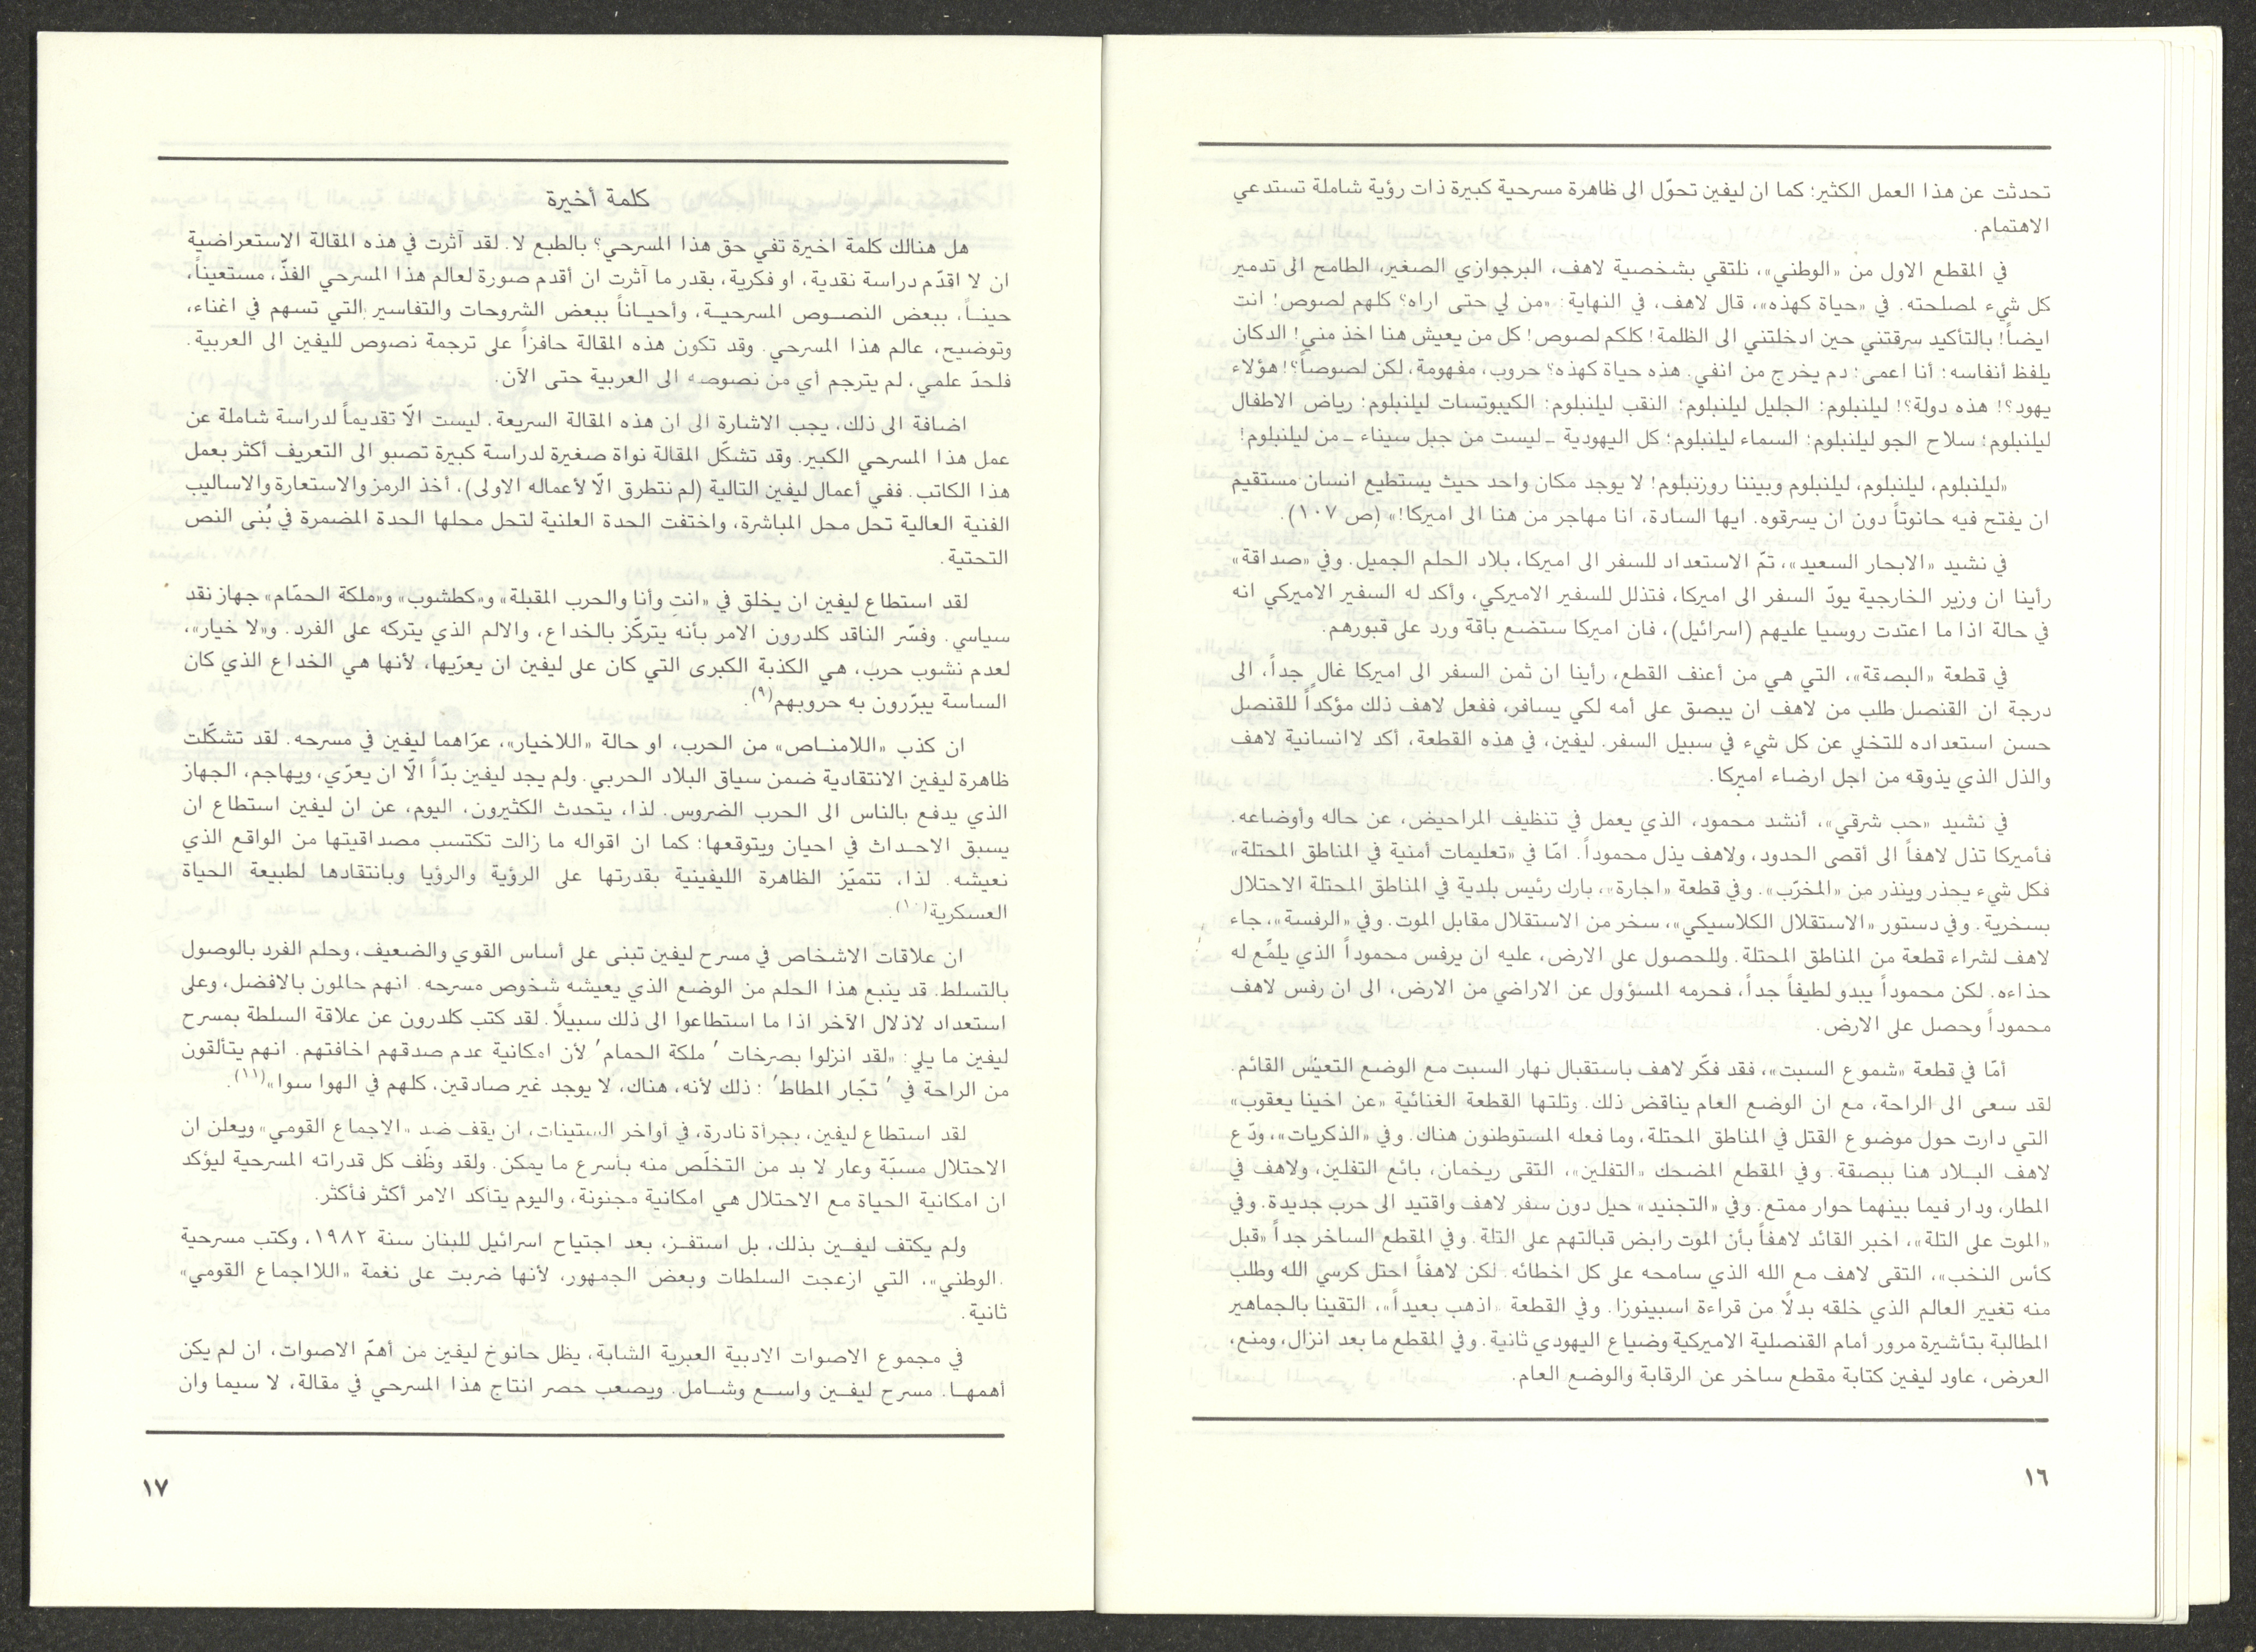 تحدثت عن هذا العمل الكثير؛ كما ان ليفين تحوّل الى ظاهرة مسرحية كبيرة ذات رؤية شاملة تستدعي
الاهتمام.
في المقطع الاول من «الوطني»، نلتقي بشخصية لاهف، البرجوازي الصغير، الطامح الى تدمير
كل شيء لمصلحته. في «حياة كهذه»، قال لاهف، في النهاية: «من لي حتى اراه؟ كلهم لصوص! انت
ايضاً! بالتأكيد سرقتني حين ادخلتني الى الظلمة! كلكم لصوص! كل من يعيش هنا اخذ مني! الدكان
يلفظ أنفاسه؛ أنا اعمى؛ دم يخرج من انفي. هذه حياة كهذه؟ حروب، مفهومة، لكن لصوصاً؟! هؤلاء
يهود؟! هذه دولة؟! ليلنبلوم: الجليل ليلنبلوم؛ النقب ليلنبلوم: الكيبوتسات ليلنبلوم؛ رياض الاطفال
ليلنبلوم؛ سلاح الجو ليلنبلوم؛ السماء ليلنبلوم؛ كل اليهودية ـ ليست من جبل سيناء ـ من ليلنبلوم!
«ليلنبلوم، ليلنبلوم، ليلنبلوم وبيننا روزنبلوم! لا يوجد مكان واحد حيث يستطيع انسان مستقيم
ان يفتح فيه حانوتاً دون ان يسرقوه. ايها السادة، انا مهاجر من هنا الى اميركا!» (ص ١٠٧).
في نشيد «الابحار السعيد»، تمّ الاستعداد للسفر الى اميركا، بلاد الحلم الجميل. وفي «صداقة»
رأينا ان وزير الخارجية يودّ السفر الى اميركا، فتذلل للسفير الاميركي، وأكد له السفير الاميركي انه
في حالة اذا ما اعتدت روسيا عليهم (اسرائيل)، فان اميركا ستضع باقة ورد على قبورهم.
في قطعة «البصقة»، التي هي من أعنف القطع، رأينا ان ثمن السفر الى اميركا غالٍ جداً، الى
درجة ان القنصل طلب من لاهف ان يبصق على أمه لكي يسافر، ففعل لاهف ذلك مؤكداً للقنصل
حسن استعداده للتخلي عن كل شيء في سبيل السفر. ليفين، في هذه القطعة، أكد لاانسانية لاهف
والذل الذي يذوقه من اجل ارضاء اميركا.
في نشيد «حب شرقي»، أنشد محمود، الذي يعمل في تنظيف المراحيض، عن حاله وأوضاعه.
فأميركا تذل لاهفاً الى أقصى الحدود، ولاهف يذل محموداً. امّا في «تعليمات أمنية في المناطق المحتلة»
فكل شيء يحذر وينذر من «المخرّب». وفي قطعة «اجارة»، بارك رئيس بلدية في المناطق المحتلة الاحتلال
بسخرية. وفي دستور «الاستقلال الكلاسيكي»، سخر من الاستقلال مقابل الموت. وفي «الرفسة»، جاء
لاهف لشراء قطعة من المناطق المحتلة. وللحصول على الارض، عليه ان يرفس محموداً الذي يلمِّع له
حذاءه. لكن محموداً يبدو لطيفاً جداً، فحرمه المسؤول عن الاراضي من الارض، الى ان رفس لاهف
محموداً وحصل على الارض.
أمّا في قطعة «شموع السبت»، فقد فكّر لاهف باستقبال نهار السبت مع الوضع التعيس القائم.
لقد سعى الى الراحة، مع ان الوضع العام يناقض ذلك. وتلتها القطعة الغنائية «عن اخينا يعقوب»
التي دارت حول موضوع القتل في المناطق المحتلة، وما فعله المستوطنون هناك. وفي «الذكريات»، ودّع
لاهف البـلاد هنا ببصقة. وفي المقطع المضحك «التفلين»، التقى ريخمان، بائع التفلين، ولاهف في
المطار، ودار فيما بينهما حوار ممتع. وفي «التجنيد» حيل دون سفر لاهف واقتيد الى حرب جديدة. وفي
«الموت على التلة»، اخبر القائد لاهفاً بأن الموت رابض قبالتهم على التلة. وفي المقطع الساخر جداً «قبل
كأس النخب»، التقى لاهف مع الله الذي سامحه على كل اخطائه. لكن لاهفاً احتل كرسي الله وطلب
منه تغيير العالم الذي خلقه بدلاً من قراءة اسبينوزا. وفي القطعة «اذهب بعيداً»، التقينا بالجماهير
المطالبة بتأشيرة مرور أمام القنصلية الاميركية وضياع اليهودي ثانية. وفي المقطع ما بعد انزال، ومنع،
العرض، عاود ليفين كتابة مقطع ساخر عن الرقابة والوضع العام.
١٦
كلمة أخيرة
هل هنالك كلمة اخيرة تفي حق هذا المسرحي؟ بالطبع لا. لقد آثرت في هذه المقالة الاستعراضية
ان لا اقدّم دراسة نقدية، او فكرية، بقدر ما آثرت ان أقدم صورة لعالم هذا المسرحي الفذّ، مستعيناً،
حينـاً، ببعض النصـوص المسرحيـة، وأحيـاناً ببعض الشروحات والتفاسير التي تسهم في اغناء،
وتوضيح، عالم هذا المسرحي. وقد تكون هذه المقالة حافزاً على ترجمة نصوص لليفين الى العربية.
فلحدّ علمي، لم يترجم أي من نصوصه الى العربية حتى الآن.
اضافة الى ذلك، يجب الاشارة الى ان هذه المقالة السريعة، ليست الّا تقديماً لدراسة شاملة عن
عمل هذا المسرحي الكبير. وقد تشكّل المقالة نواة صغيرة لدراسة كبيرة تصبو الى التعريف أكثر بعمل
هذا الكاتب. ففي أعمال ليفين التالية (لم نتطرق الّا لأعماله الاولى)، أخذ الرمز والاستعارة والاساليب
الفنية العالية تحل محل المباشرة، واختفت الحدة العلنية لتحل محلها الحدة المضمرة في بُنى النص
التحتية.
لقد استطاع ليفين ان يخلق في «انتِ وأنا والحرب المقبلة» و«كطشوب» و«ملكة الحمّام» جهاز نقد
سياسي. وفسّر الناقد كلدرون الامر بأنه يتركّز بالخداع، والالم الذي يتركه على الفرد. و«لا خيار»،
لعدم نشوب حرب، هي الكذبة الكبرى التي كان على ليفين ان يعرّيها، لأنها هي الخداع الذي كان
الساسة يبرّرون به حروبهم(٩).
ان كذب «اللامنـاص» من الحرب، او حالة «اللاخيار»، عرّاهما ليفين في مسرحه. لقد تشكّلت
ظاهرة ليفين الانتقادية ضمن سياق البلاد الحربي. ولم يجد ليفين بدّاً الّا ان يعرّي، ويهاجم، الجهاز
الذي يدفع بالناس الى الحرب الضروس. لذا، يتحدث الكثيرون، اليوم، عن ان ليفين استطاع ان
يسبق الاحـداث في احيان ويتوقعها؛ كما ان اقواله ما زالت تكتسب مصداقيتها من الواقع الذي
نعيشه. لذا، تتميّز الظاهرة الليفينية بقدرتها على الرؤية والرؤيا وبانتقادها لطبيعة الحياة
العسكرية(١٠).
ان علاقات الاشخاص في مسرح ليفين تبنى على أساس القوي والضعيف، وحلم الفرد بالوصول
بالتسلط. قد ينبع هذا الحلم من الوضع الذي يعيشه شخوص مسرحه. انهم حالمون بالافضل، وعلى
استعداد لاذلال الآخر اذا ما استطاعوا الى ذلك سبيلاً. لقد كتب كلدرون عن علاقة السلطة بمسرح
ليفين ما يلي: «لقد انزلوا بصرخات ' ملكة الحمام' لأن امكانية عدم صدقهم اخافتهم. انهم يتألقون
من الراحة في ' تجّار المطاط' ؛ ذلك لأنه، هناك، لا يوجد غير صادقين، كلهم في الهوا سوا»(١١).
لقد استطاع ليفين، بجرأة نادرة، في أواخر الستينات، ان يقف ضد «الاجماع القومي» ويعلن ان
الاحتلال مسبّة وعار لا بد من التخلّص منه بأسرع ما يمكن. ولقد وظّف كل قدراته المسرحية ليؤكد
ان امكانية الحياة مع الاحتلال هي امكانية مجنونة، واليوم يتأكد الامر أكثر فأكثر.
ولم يكتف ليفـين بذلك، بل استفـز، بعد اجتياح اسرائيل للبنان سنة ١٩٨٢، وكتب مسرحية
.الوطني»، التي ازعجت السلطات وبعض الجمهور، لأنها ضربت على نغمة «اللااجماع القومي»
ثانية.
في مجموع الاصوات الادبية العبرية الشابة، يظل حانوخ ليفين من أهمّ الاصوات، ان لم يكن
أهمهـا. مسرح ليفـين واسـع وشـامل. ويصعب حصر انتاج هذا المسرحي في مقالة، لا سيما وان
١٧